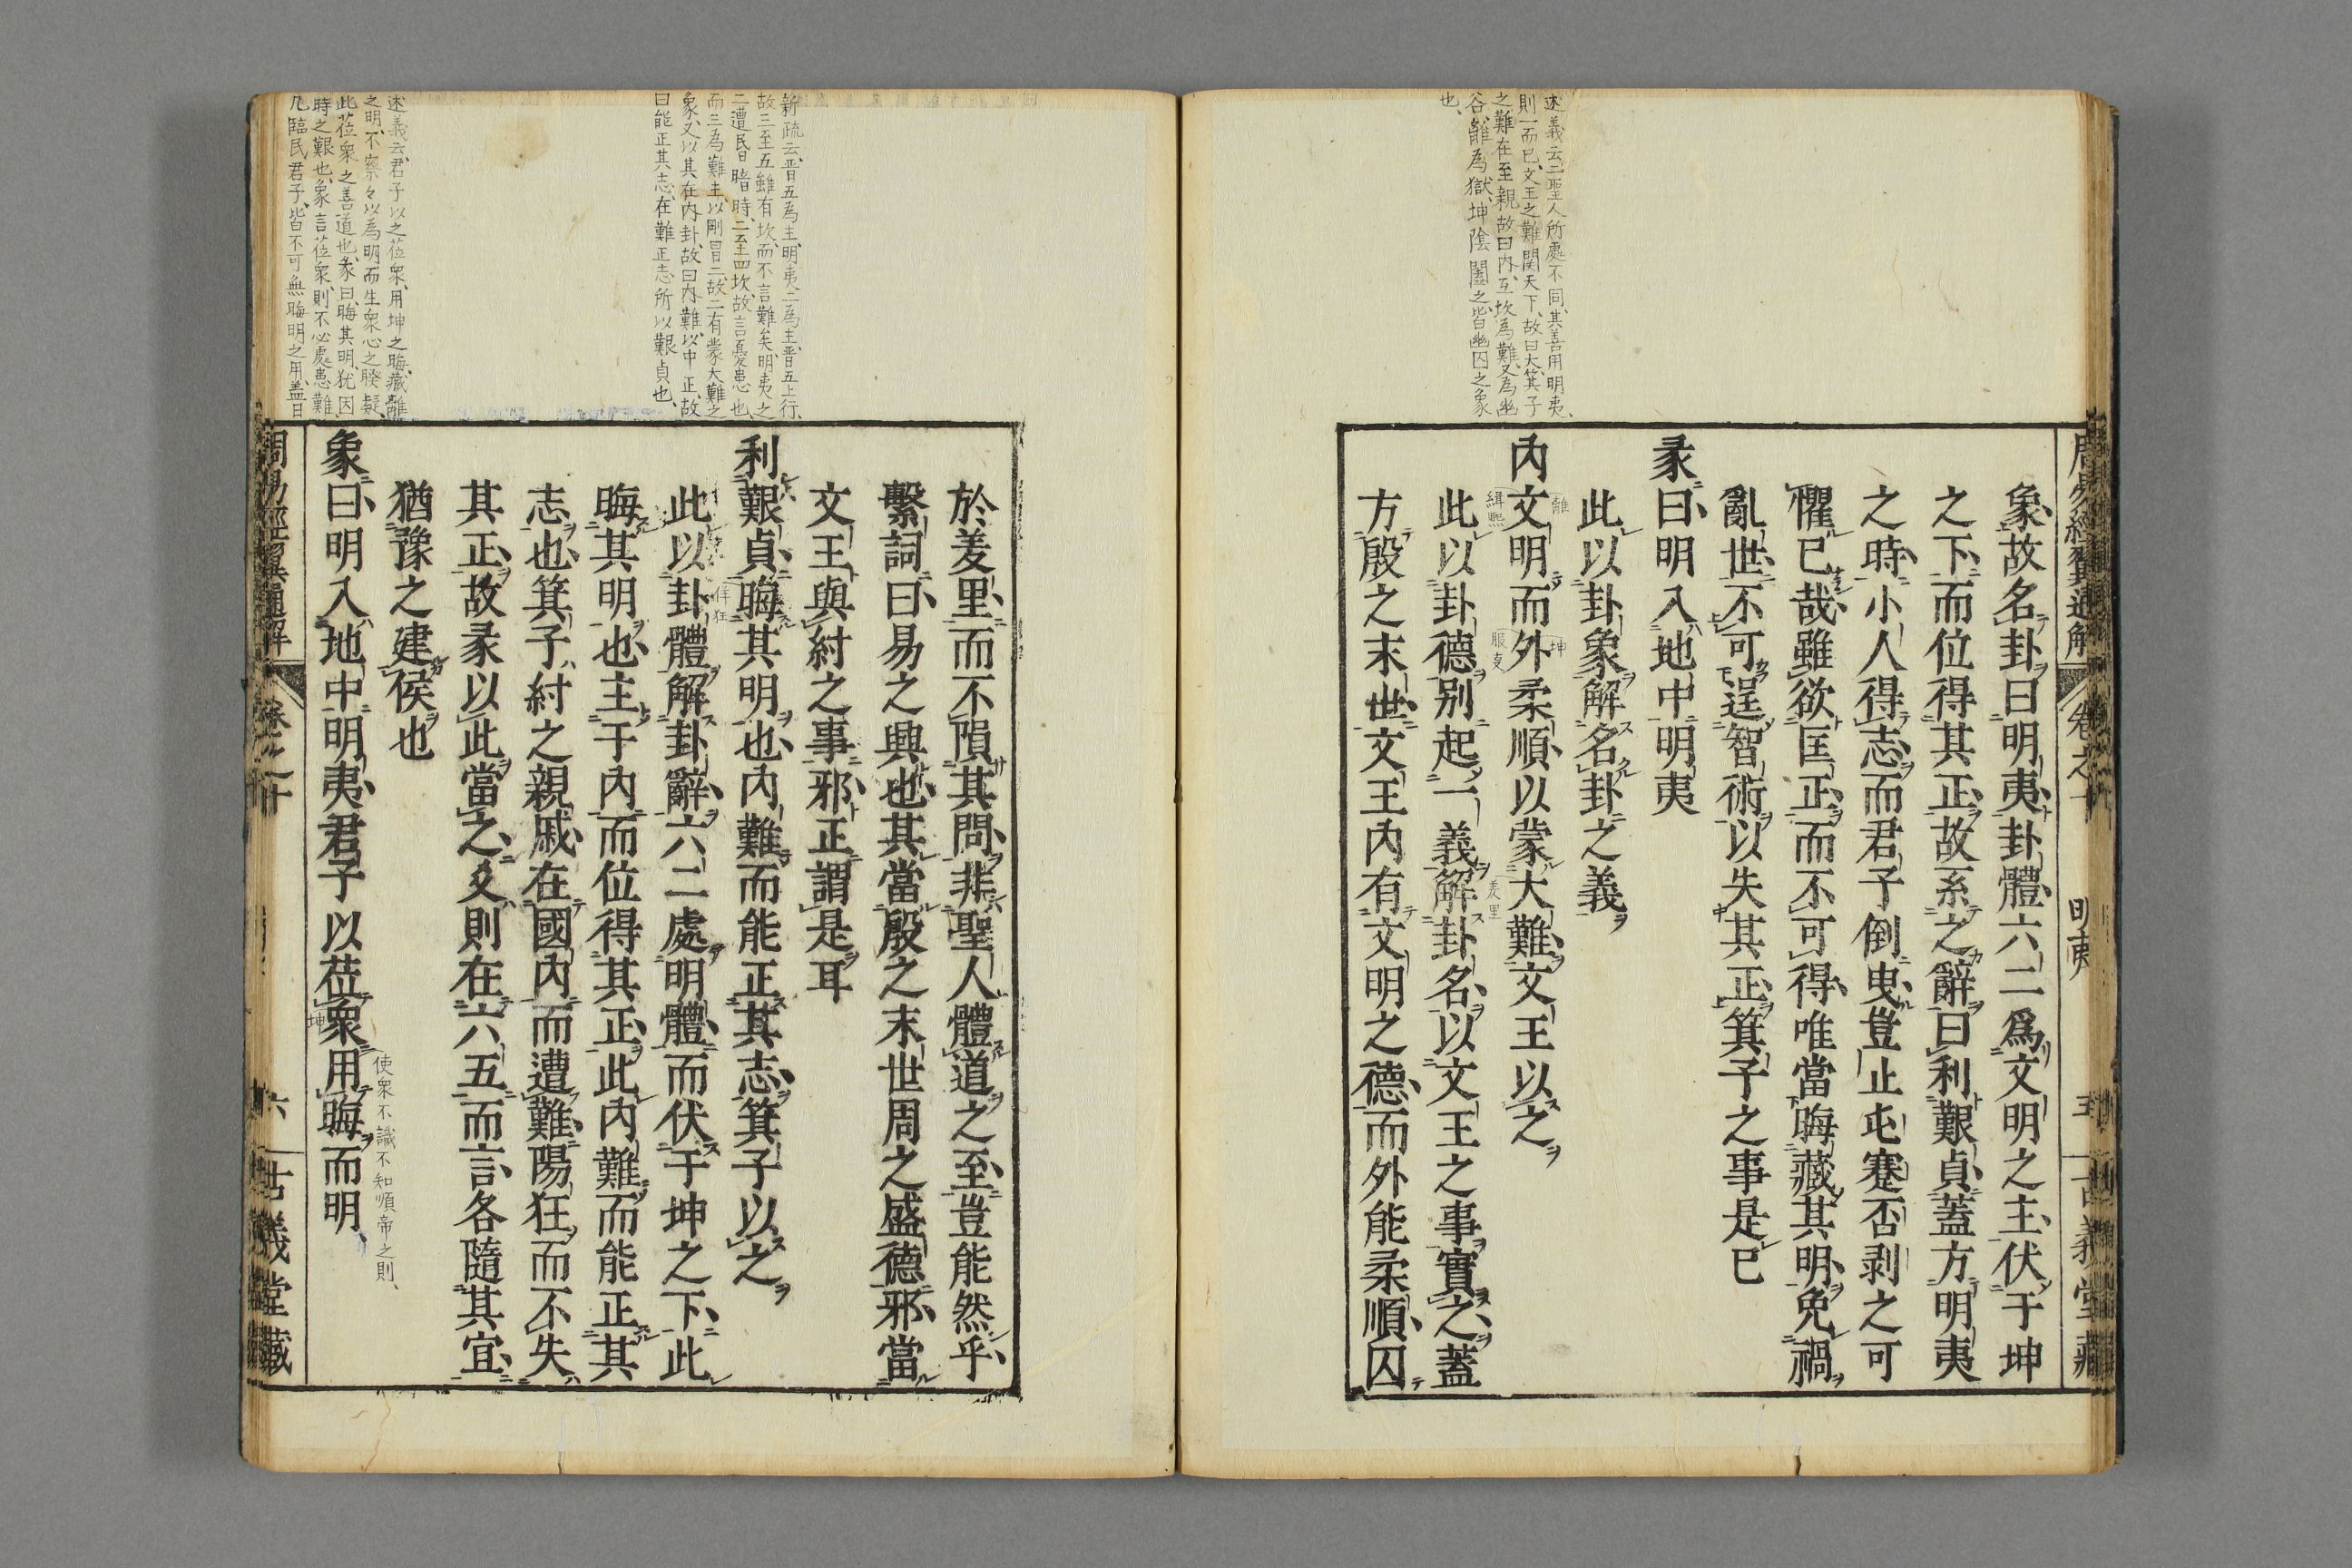 述義云三聖人所處不同其善用明夷、
則一而已、文王之難関天下、故曰大、箕子
之難在至親、故曰内、互坎為難、又為幽
谷、離為獄、坤陰闔之、皆幽囚之象
也、
周易經翼通解 卷之十 明夷 五 古義堂藏
象故名卦曰明夷卦體六二爲文明之主伏于坤
之下而位得其正故系之辭曰利艱貞蓋方明夷
之時小人得志而君子倒曳豈止屯蹇否剥之可
懼已哉雖欲匡正而不可得唯當晦藏其明免禍
亂世不可逞智術以失其正箕子之事是已
彖曰明入地中明夷
此以卦象解名卦之義
内文明而外柔順以蒙大難文王以之
離
緝熙
坤
服事
羑里
此以卦德別起一義解卦名以文王之事實之蓋
方殷之末世文王内有文明之德而外能柔順囚
新疏云、晋五為主、明夷二為主、晋五上行、
故三至五雖有坎、而不言難矣、明夷之
二遭民日暗時、二至四坎、故言憂患也、
而三為難主、以剛冒二、故二有蒙大難之
象、又以其在内卦、故曰内難、以中正、故
曰能正其志、在難正志、所以艱貞也、
於羑里而不隕其問非聖人體道之至豈能然乎
繫詞曰易之興也其當殷之末世周之盛德邪當
文王與紂之事邪正謂是耳
利艱貞晦其明也内難而能正其志箕子以之
佯狂
此以卦體解卦辭六二處明體而伏于坤之下此
晦其明也主于内而位得其正此内難而能正其
志也箕子紂之親戚在國内而遭難陽狂而不失
其正故彖以此當之爻則在六五而言各隨其宜
猶豫之建侯也
述義云、君子以之莅衆、用坤之晦、藏離
之明、不察々以為明而生衆心之睽疑、
此莅衆之善道也、彖曰、晦其明、犹因
時之艱也、象言莅衆、則不必處患難、
凡臨民君子、皆不可無晦明之用、盖日
象曰明入地中明夷君子以莅衆用晦而明、
坤
使衆不識不知順帝之則、
周易經翼通解 卷之十 六 古義堂藏